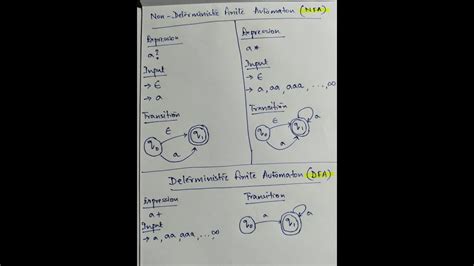 Non-Deterministic Finite Automaton (NFA)
Expression
a?
Input
→ ϵ
→ a
Transition
q0
ϵ
a
q1
Expression
a*
Input
→ ϵ
→ a, aa, aaa, ...., ∞
Transition
q0
ϵ
a
q1
a
Deterministic Finite Automaton (DFA)
Expression
a+
Input
→ a, aa, aaa, ..., ∞
Transition
q0
a
q1
a